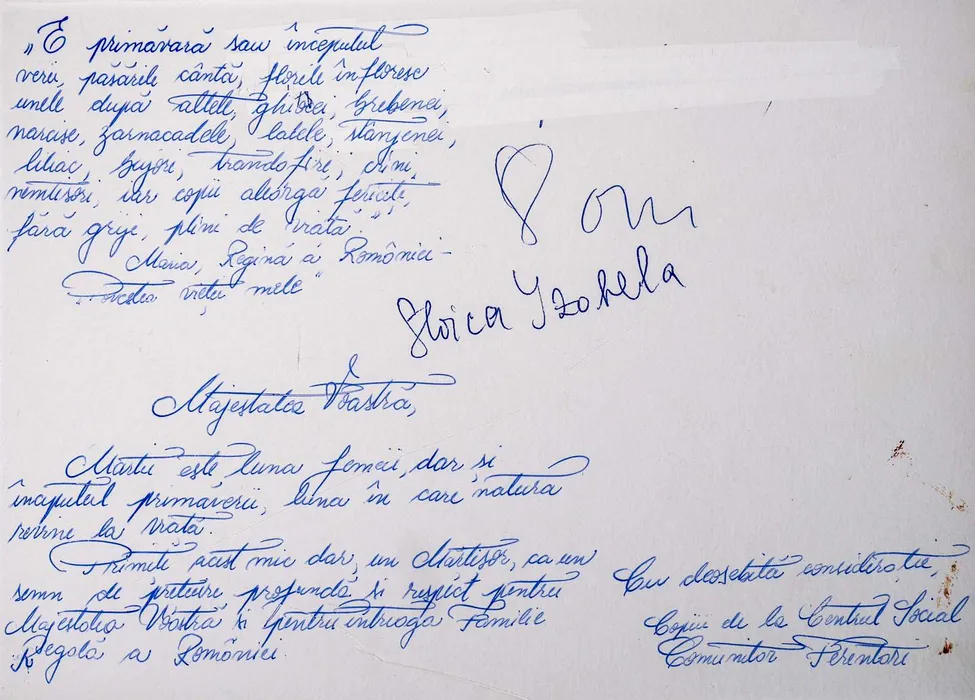 „E primăvară sau începutul
verii, pasările cântă, florile înfloresc
unele după altele, ghiocei, brebenei,
narcise, zarnacadele, lalele, stânjenei,
liliac, bujori, trandafiri, crini,
nemtisori, iar copii aleargă fericiti,
fără grije, plini de viată.",
Maria, Regină a României -
„Povestea vieții mele"
om
Stoica Izabela
Majestatea Voastră,
Martie este luna femeii, dar si
începutul primăverii, luna în care natura
revine la viată.
Primiti acest mic dar, un Mărtisor, ca un
semn de pretuire profundă si respect pentru
Majestatea Voastră si pentru întreaga Familie
Regală a României.
Cu deosebită consideratie,
Copiii de la Centrul Social
Comunitar Ferentari